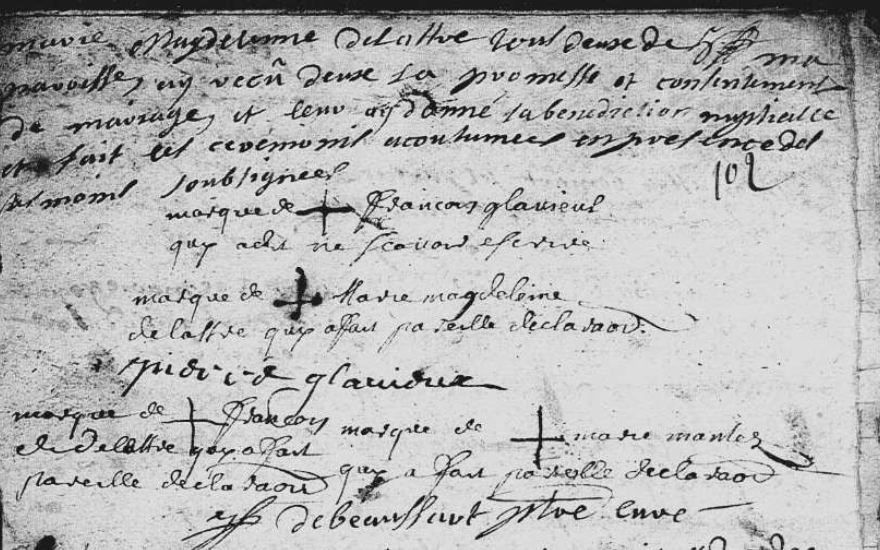 marie Magdelenne delattre tous deux de ma
paroisse, ay receu deux la promesse et consentement
de mariage, et leur ay donné la benediction nuptialle
et fait les ceremonis acoutumees en presence des
tesmoins soubsignees
102
marque de + francois glauieus
quy a dit ne scauoir escrire
marque de + Marie magdeleine
delattre quy a fait pareille declaraon
pierre glauieux
marque de + francois
delattre quy a fait
pareille declaraon
marque de + marie
quy a fait pareille declaraon
debeaussart ptre cure